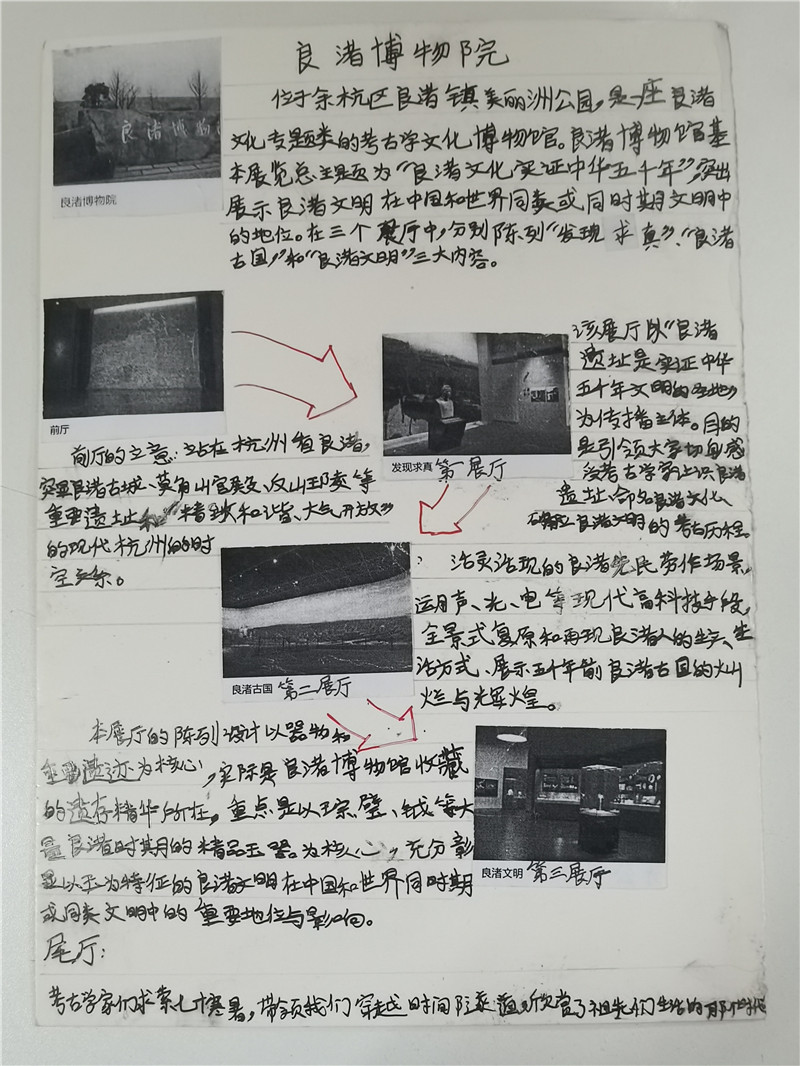 良渚博物院
位于余杭区良渚镇美丽洲公园,是一座良渚
文化专题类的考古学文化博物馆。良渚博物馆基
本展览总主题为“良渚文化实证中华五千年”,突出
展示良渚文明在中国和世界同类或同时期文明中
的地位。在三个展厅中,分别陈列“发现求真”、“良渚
古国”,和“良渚文明”三大内容。
良渚博物
良渚博物院
前厅
前厅的立意:站在杭州省良渚,
重要遗址和“精致和谐、大气开放”
的现代杭州的时
空交标。
发现求真 第一展厅
该展厅以“良渚
遗址是实证中华
五千年文明的圣地”
为传播主体。目的
是引领大家切身感
受考古学家认识良渚
遗址、命名良渚文化、
确立良渚文明的考古历程。
活灵活现的良渚先民劳作场景,
运用声、光、电等现代高科技手段,
全景式复原和再现良渚人的生产、生
活方式、展示五千年前良渚古国的灿
烂与光辉煌。
良渚古国 第二展厅
本展厅的陈列设计以器物和
重要遗迹为核心,实际是良渚博物馆收藏
的遗存精华所在,重点是以琮、璧、钺等大
量良渚时期的精品玉器。为核心,充分彰
显以玉为特征的良渚文明在中国和世界同时期
或同类文明中的重要地位与影响。
良渚文明 第三展厅
尾厅:
考古学家们求索七十寒暑,带领我们穿越时间隧道欣赏了祖先们生活的那个时代